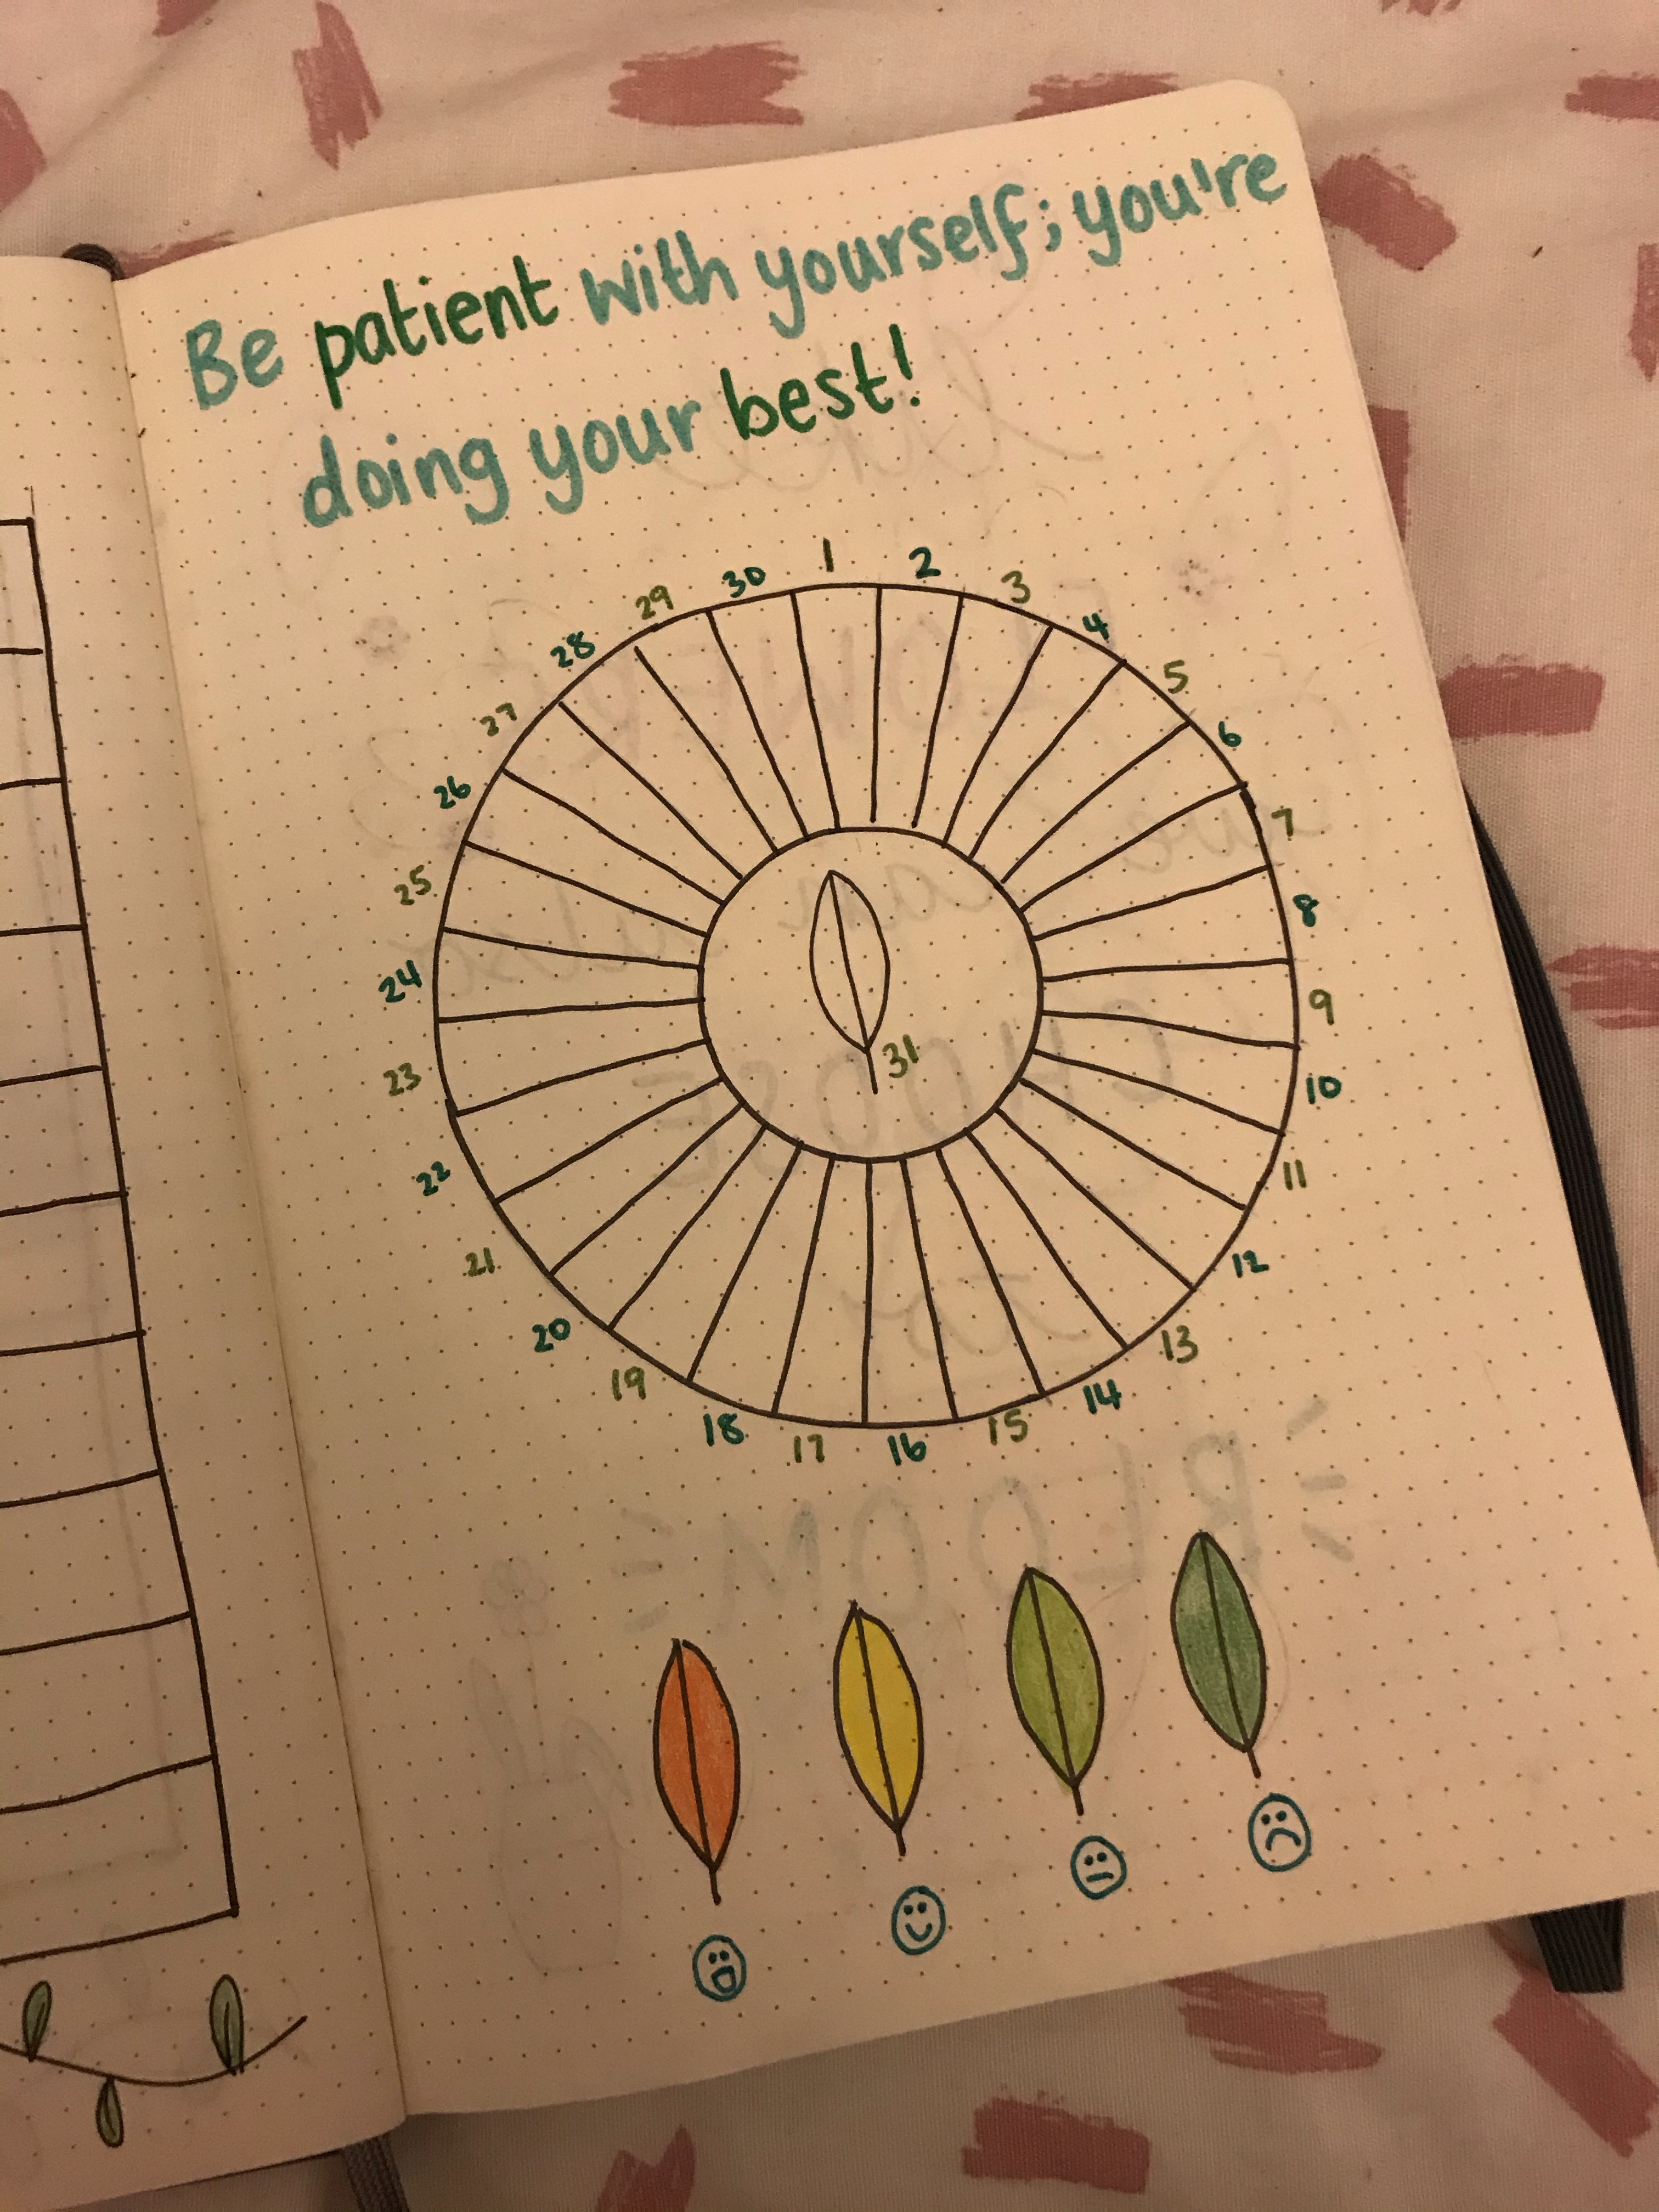 Be patient with yourself; you're
doing your best!
1
2
3
4
5
6
7
8
9
10
11
12
13
14
15
16
17
18
19
20
21
22
23
24
25
26
27
28
29
30
31